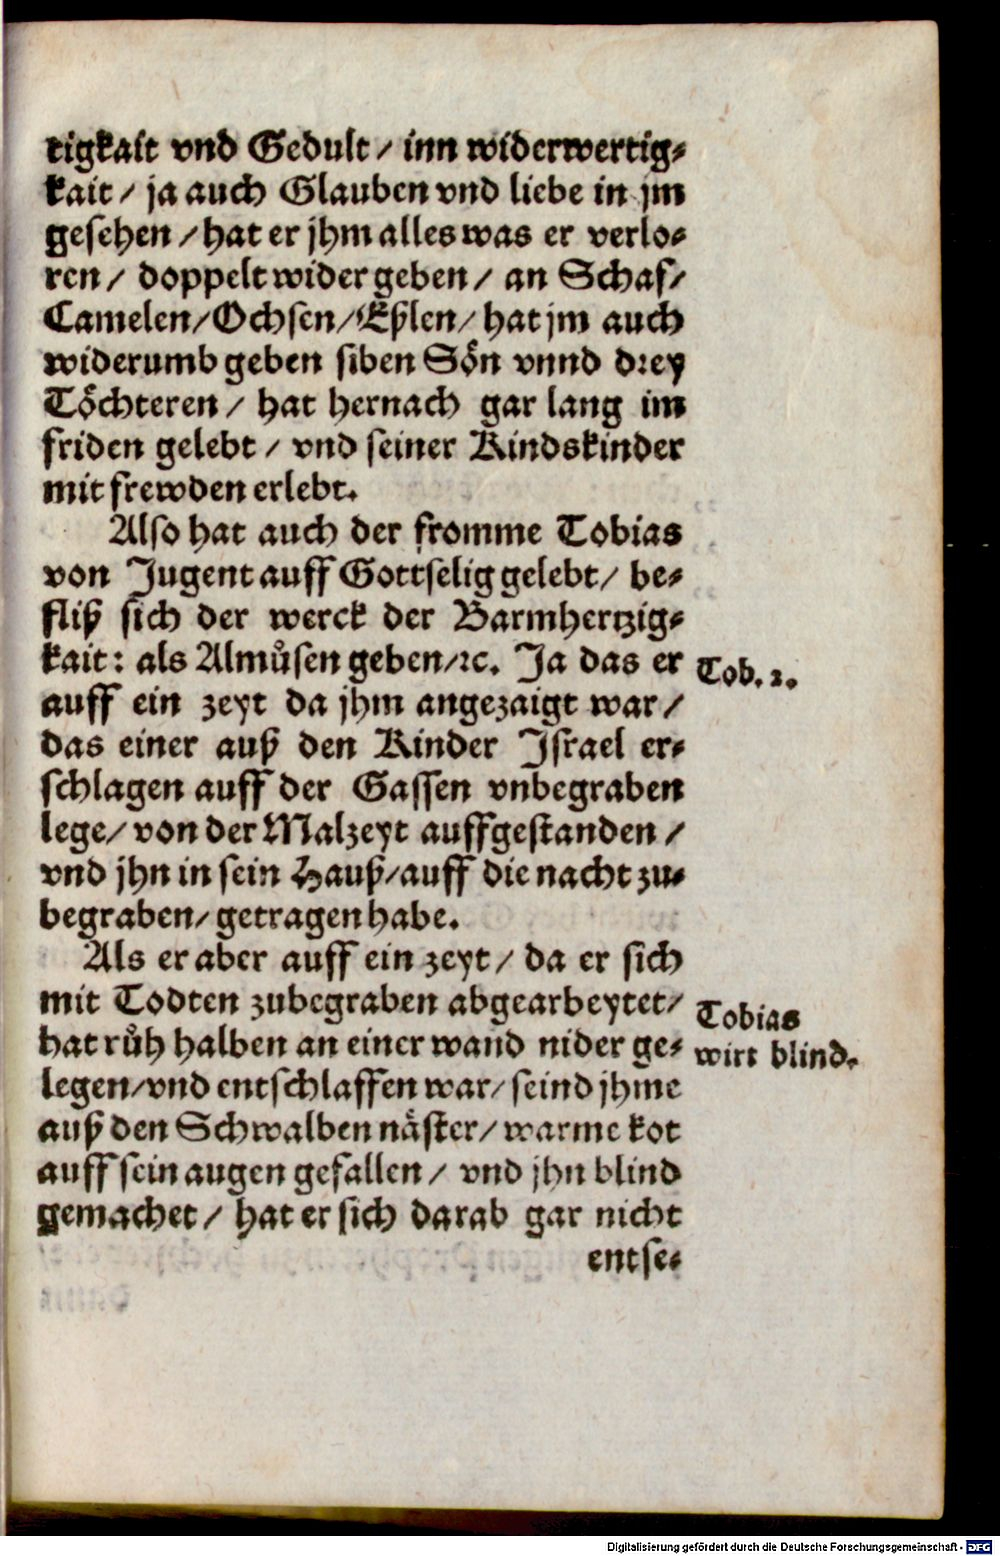 tigkait vnd Gedult / inn widerwertig⸗
kait / ja auch Glauben vnd liebe in jm
gesehen / hat er jhm alles was er verlo⸗
ren / doppelt wider geben / an Schaf /
Camelen / Ochsen / Eßlen / hat jm auch
widerumb geben siben Sön vnnd drey
Töchteren / hat hernach gar lang im
friden gelebt / vnd seiner Kindskinder
mit frewden erlebt.
Also hat auch der fromme Tobias
von Jugent auff Gottselig gelebt / be⸗
fliß sich der werck der Barmhertzig⸗
kait: als Almůsen geben / ꝛc. Ja das er
Tob. 2.
auff ein zeyt da jhm angezaigt war /
das einer auß den Kinder Israel er⸗
schlagen auff der Gassen vnbegraben
lege / von der Malzeyt auffgestanden /
vnd jhn in sein Hauß / auff die nacht zu⸗
begraben / getragen habe.
Als er aber auff ein zeyt / da er sich
mit Todten zubegraben abgearbeytet /
Tobias
hat růh halben an einer wand nider ge⸗
wirt blind.
legen / vnd entschlaffen war / seind jhme
auß den Schwalben näster / warme kot
auff sein augen gefallen / vnd jhn blind
gemachet / hat er sich darab gar nicht
entse⸗
Digitalisierung gefördert durch die Deutsche Forschungsgemeinschaft - DFG